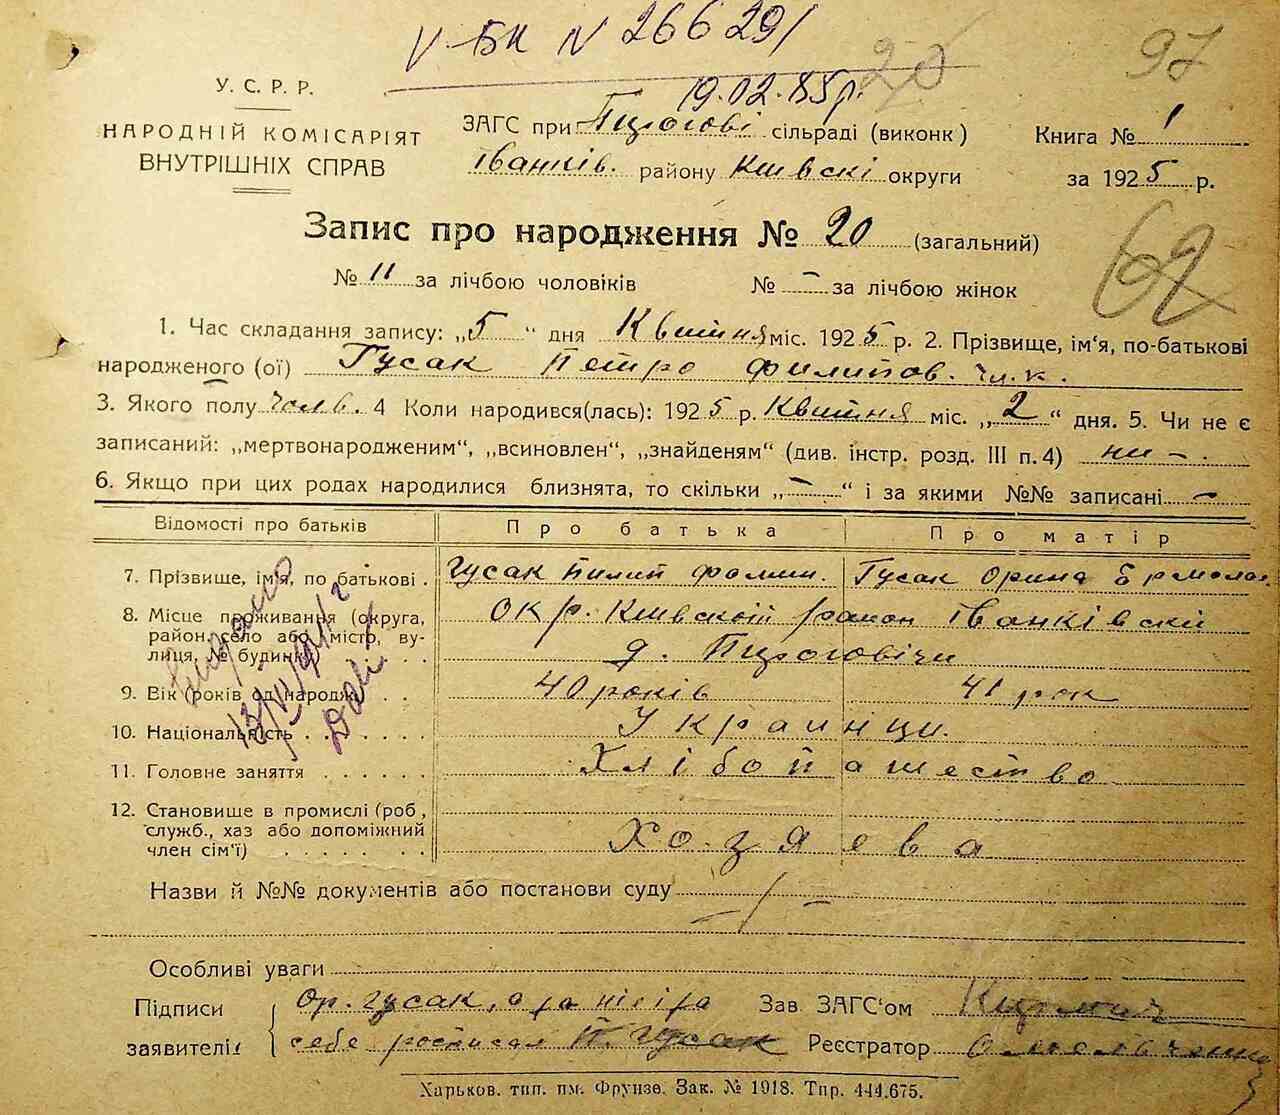 V-БК N 266291
19.02.85р.
20
97
У. С. Р. Р.
НАРОДНІЙ КОМІСАРІЯТ
ВНУТРІШНІХ СПРАВ
ЗАГС при Пирогові сільраді (виконк)
Іванків. району Київскі округи
Книга № 1
за 1925 р.
Запис про народження № 20 (загальний)
62
№ 11 за лічбою чоловіків № – за лічбою жінок
1. Час складання запису: „5" дня Квитня міс. 1925 р. 2. Прізвище, ім'я, по-батькові
народженого (ої) Гусак Петро Филипов.
3. Якого полу чолв. 4 Коли народився(лась): 1925 р. Квитня міс. „2" дня. 5. Чи не є
записаний: „мертвонародженим", „всиновлен", „знайденям" (див. інстр. розд. III п. 4) ни –.
6. Якщо при цих родах народилися близнята, то скільки „–" і за якими №№ записані –
Відомості про батьків Про батька Про матір
7. Прізвище, ім'я, по батькові. Гусак Пилип Фомин. Гусак Орина Ермолаев
8. Місце проживання (округа, район, село або місто, вулиця, № будинк. Окр. Київской район Іванківский
д. Пироговичи
9. Вік (років од народж. 40 років 41 рок
10. Національність Украинци.
11. Головне заняття Хлібопашество
12. Становище в промислі (роб, служб., хаз або допоміжний член сім'ї) Хозяева
Назви й №№ документів або постанови суду –
Особливі уваги
Підписи заявителів Ор. Гусак, а за
себе росписал П. Гусак
Зав. ЗАГС'ом
Реєстратор Омельченко
Харьков. тип. им. Фрунзе. Зак. № 1918. Тир. 444.675.